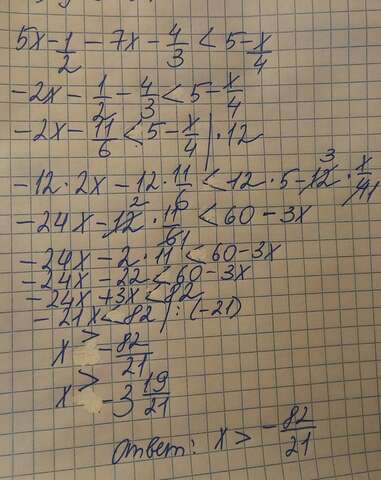 5x - 1/2 - 7x - 4/3 < 5 - x/4
-2x - 1/2 - 4/3 < 5 - x/4
-2x - 11/6 < 5 - x/4 | · 12
-12 · 2x - 12 · 11/6 < 12 · 5 - 12 3 · x/4 1
-24x - 12 2 · 11/6 1 < 60 - 3x
-24x - 2 · 11 < 60 - 3x
-24x - 22 < 60 - 3x
-24x + 3x < 82
-21x < 82 | : (-21)
x > - 82/21
x > - 3 19/21
Ответ: x > - 82/21